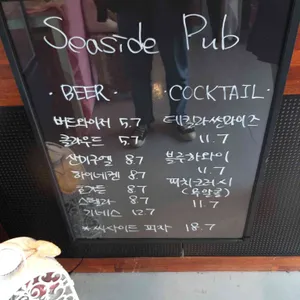 Seaside Pub
· BEER ·
버드와이저 5.7
클라우드 5.7
산미구엘 8.7
하이네켄 8.7
호가든 8.7
스텔라 8.7
기네스 12.7
· COCKTAIL ·
데킬라썬라이즈
11.7
블루하와이
11.7
피치크러쉬
(무알콜)
11.7
* 씨싸이드 피자 18.7